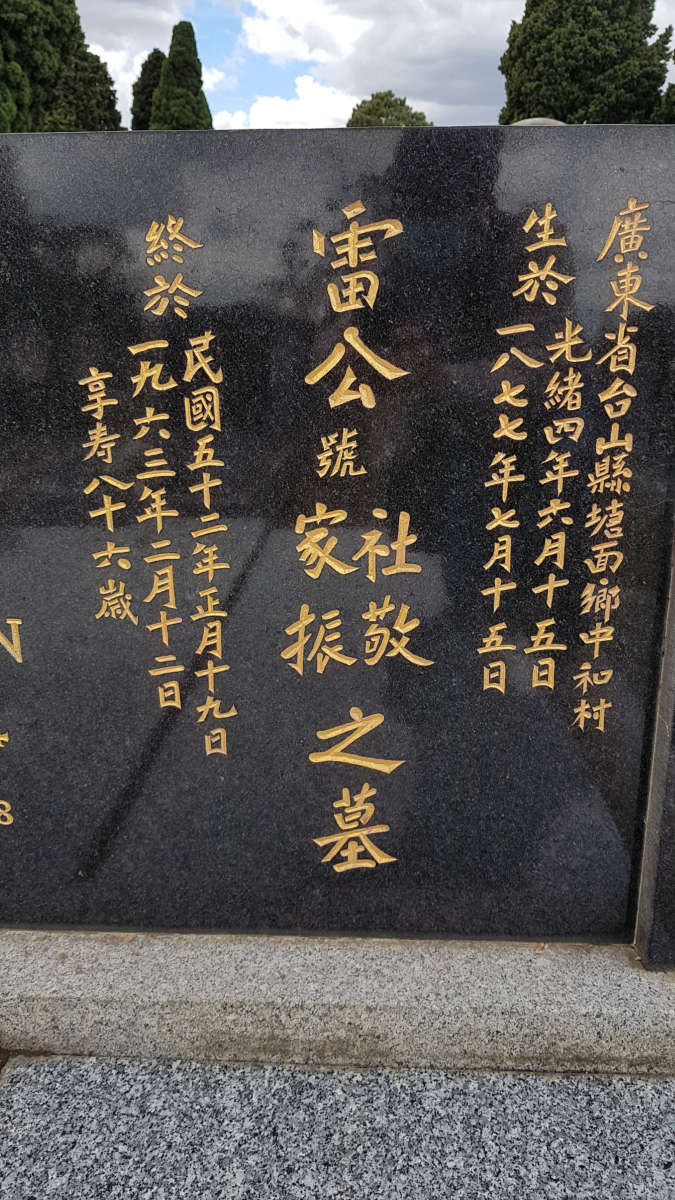 廣東省台山縣塘面鄉中和村
生於
光緒四年六月十五日
一八七七年七月十五日
雷公號
社敬
家振
之墓
終於
民國五十二年正月十九日
一九六三年二月十二日
享寿八十六歲
N
8